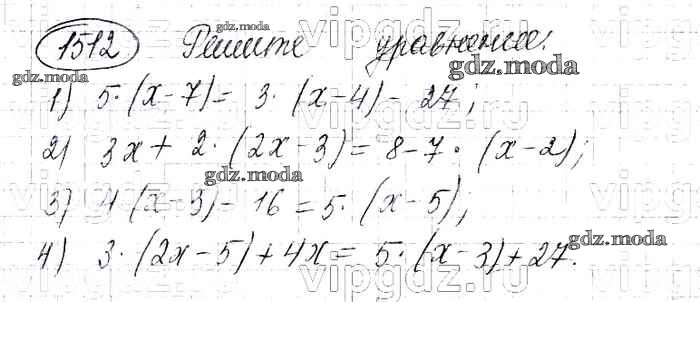 1512 Решите уравнение:
1) 5·(x-7)= 3·(x-4)-27;
2) 3x+2·(2x-3)=8-7·(x-2);
3) 4(x-3)-16=5·(x-5);
4) 3·(2x-5)+4x=5·(x-3)+27.
gdz.moda
gdz.moda
gdz.moda
gdz.moda
gdz.moda
vipgdz.ru
vipgdz.ru
vipgdz.ru
vipgdz.ru
vipgdz.ru
vipgdz.ru